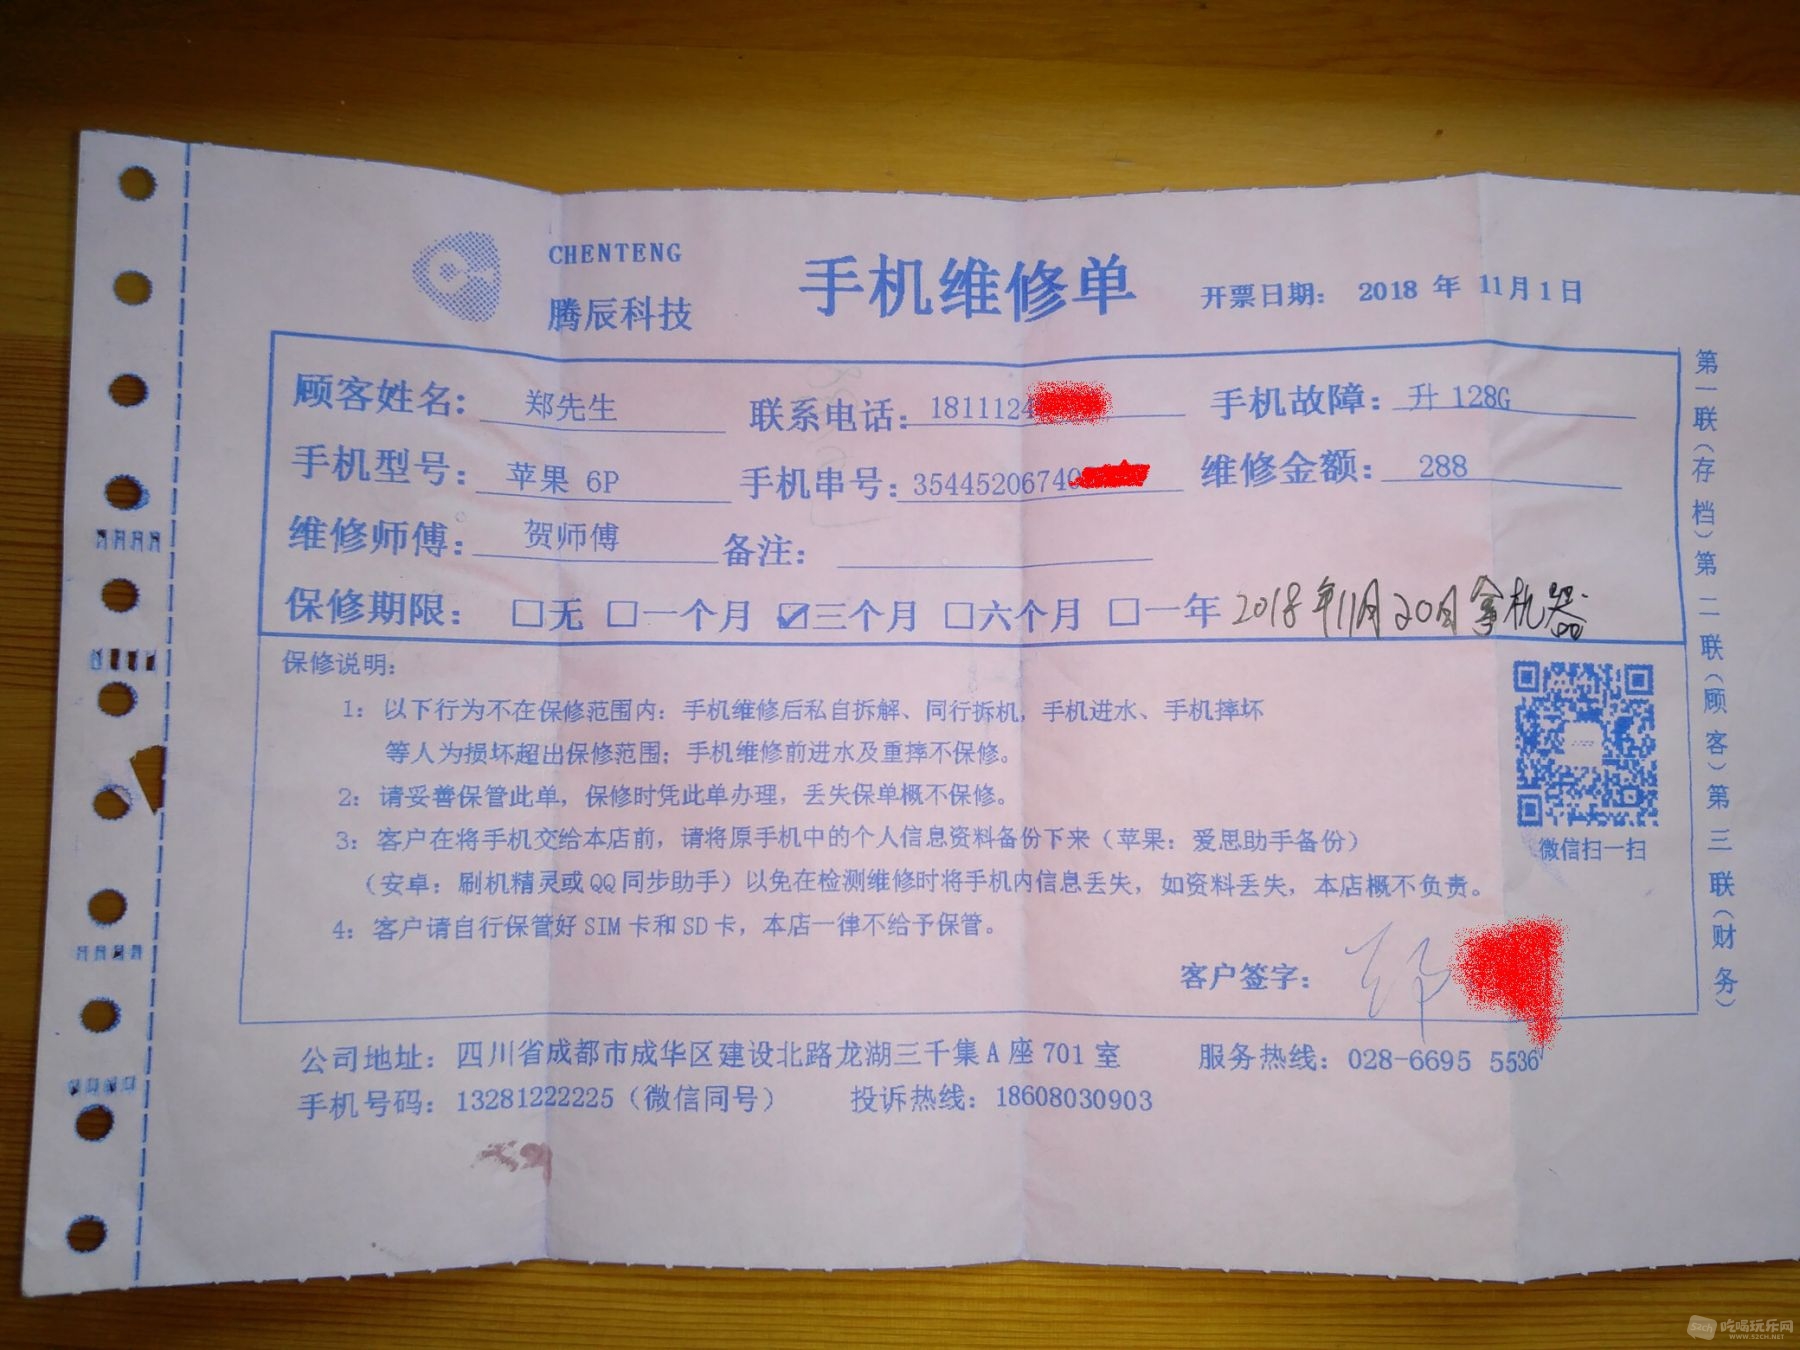 CHENTENG
腾辰科技
手机维修单
开票日期: 2018 年 11月1日
顾客姓名: 郑先生 联系电话: 1811124 手机故障: 升 128G
手机型号: 苹果 6P 手机串号: 35445206740 维修金额: 288
维修师傅: 贺师傅 备注:
保修期限: □无 □一个月 ☑三个月 □六个月 □一年 2018年11月20日拿机器
保修说明:
1: 以下行为不在保修范围内: 手机维修后私自拆解、同行拆机, 手机进水、手机摔坏
等人为损坏超出保修范围; 手机维修前进水及重摔不保修。
2: 请妥善保管此单, 保修时凭此单办理, 丢失保单概不保修。
3: 客户在将手机交给本店前, 请将原手机中的个人信息资料备份下来 (苹果: 爱思助手备份)
(安卓: 刷机精灵或QQ同步助手) 以免在检测维修时将手机内信息丢失, 如资料丢失, 本店概不负责。
4: 客户请自行保管好 SIM 卡和 SD 卡, 本店一律不给予保管。
微信扫一扫
客户签字: 郑
公司地址: 四川省成都市成华区建设北路龙湖三千集 A 座 701 室 服务热线: 028-6695 5536
手机号码: 13281222225 (微信同号) 投诉热线: 18608030903
第一联(存档)第二联(顾客)第三联(财务)
52ch 吃喝玩乐网
WWW.52CH.NET